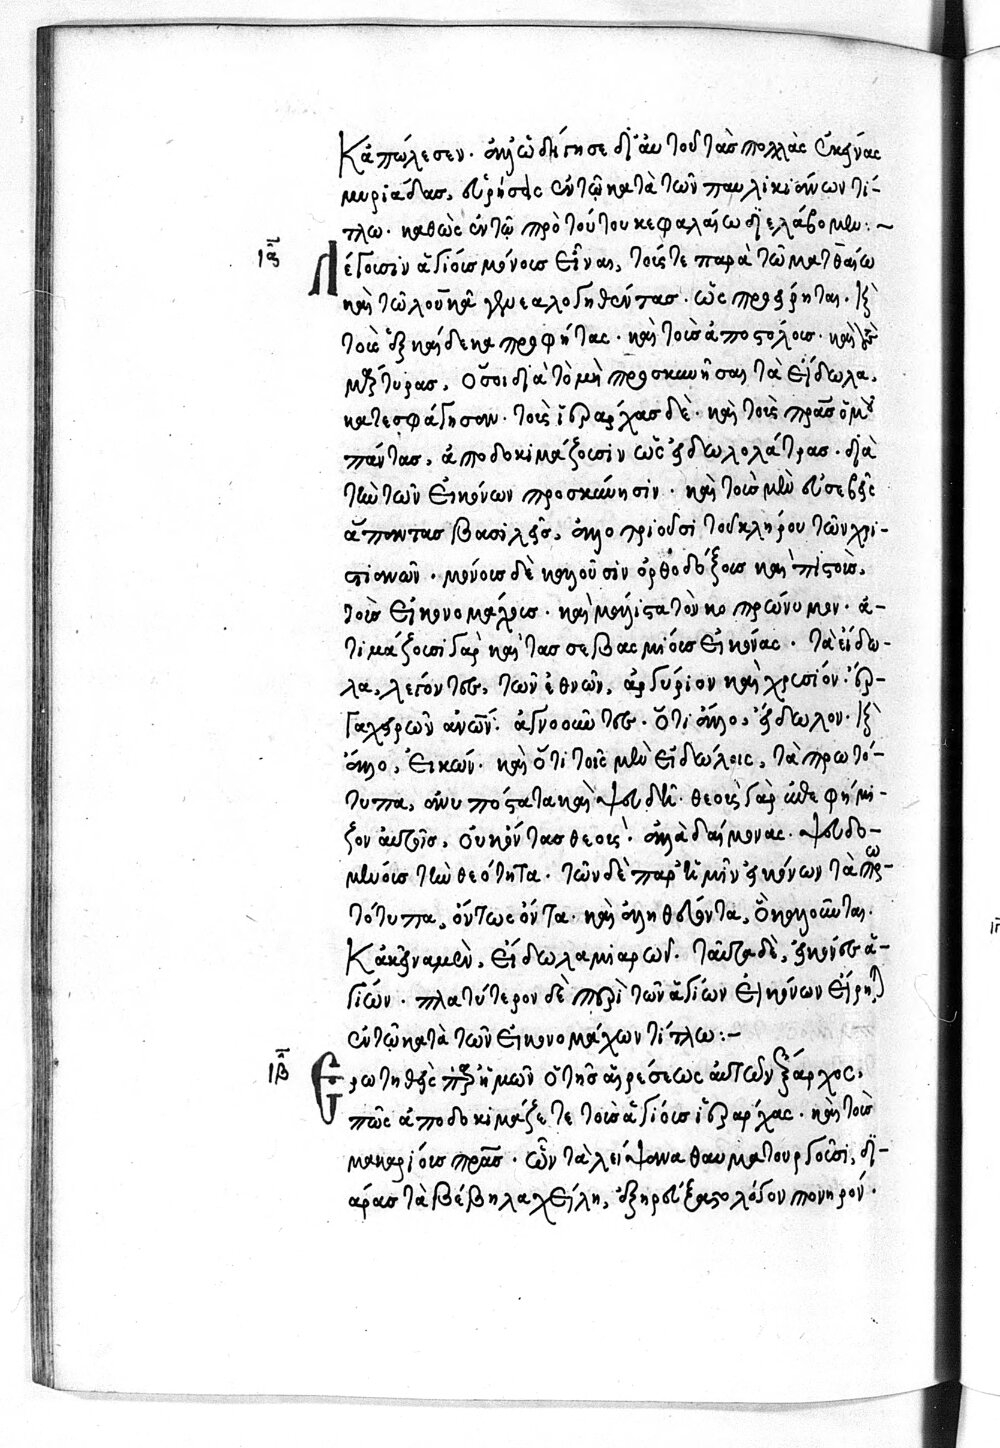 κἀπώλεσεν. καὶ ὡδήγησε δι' αὐτοῦ τὰς πολλὰς ἐκείνας
μυριάδας, εὑρήσεις ἐν τῶ κατὰ τῶν παυλικιάνων τί-
τλω. καθὼς ἐν τῶ πρὸ τούτου κεφαλαίω διελάβομεν:~
ια Λέγουσιν ἁγίους μόνους εἶναι, τούς τε παρὰ τῶ ματθαίω
καὶ τῶ λουκᾶ γενεαλογηθέντας. ὡς προείρηται. καὶ
τοὺς ἑξκαίδεκα προφήτας. καὶ τοὺς ἀποστόλους. καὶ τοὺς
μάρτυρας, ὅσοι διὰ τὸ μὴ προσκυνῆσαι τὰ εἴδωλα,
κατεσφάγησαν. τοὺς ἱεράρχας δὲ. καὶ τοὺς πρας ὁμοῦ
πάντας, ἀποδοκιμάζουσιν ὡς εἰδωλολάτρας. διὰ
τὴν τῶν εἰκόνων προσκύνησιν. καὶ τοὺς μὲν εὐσεβεῖς
ἅπαντας βασιλεῖς, ἀποπριοῦσι τοῦ κλήρου τῶν χρι-
στιανῶν. μόνους δὲ καλοῦσιν ὀρθοδόξους καὶ πιστοὺς,
τοὺς εἰκονομάχους. καὶ μάλιστα τὸν κοπρώνυμον. ἀ-
τιμάζουσι γὰρ καὶ τὰς σεβασμίους εἰκόνας. τὰ εἴδω-
λα, λέγοντες, τῶν ἐθνῶν, ἀργύριον καὶ χρυσίον. ἔρ-
γα χειρῶν ἀνων. ἀγνοοῦντες. ὅτι ἄλλο, εἴδωλον. καὶ
ἄλλο, εἰκών. καὶ ὅτι τοῖς μὲν εἰδώλοις, τὰ πρωτό-
τυπα, ἀνυπόστατα καὶ ψευδῆ. θεοὺς γὰρ ἀνεφήμι-
ζον αὐτοῖς, οὐκ ὄντας θεοὺς. ἀλλὰ δαίμονας. ψευδο-
μένους τὴν θεότητα. τῶν δὲ παρ' ἡμῖν εἰκόνων τὰ πρω-
τότυπα, ὄντως ὄντα. καὶ ἀληθεύοντα, ὃ καλοῦνται.
κἀκεῖνα μὲν, εἴδωλα μιαρῶν. ταῦτα δὲ, εἰκόνες ἁ-
γίων. πλατύτερον δὲ περὶ τῶν ἁγίων εἰκόνων εἴρηται
ἐν τῶ κατὰ τῶν εἰκονομάχων τίτλω:~
ιβ Ἐρωτηθεὶς παρ' ἡμῶν ὁ τῆς αἱρέσεως αὐτῶν ἔξαρχος,
πῶς ἀποδοκιμάζετε τοὺς ἁγίους ἱεράρχας. καὶ τοὺς
μακαρίους πρας. ὧν τὰ λείψανα θαυματουργοῦσι, δι-
άρας τὰ βέβηλα χείλη, ἐξηρεύξατο λόγον πονηρόν.